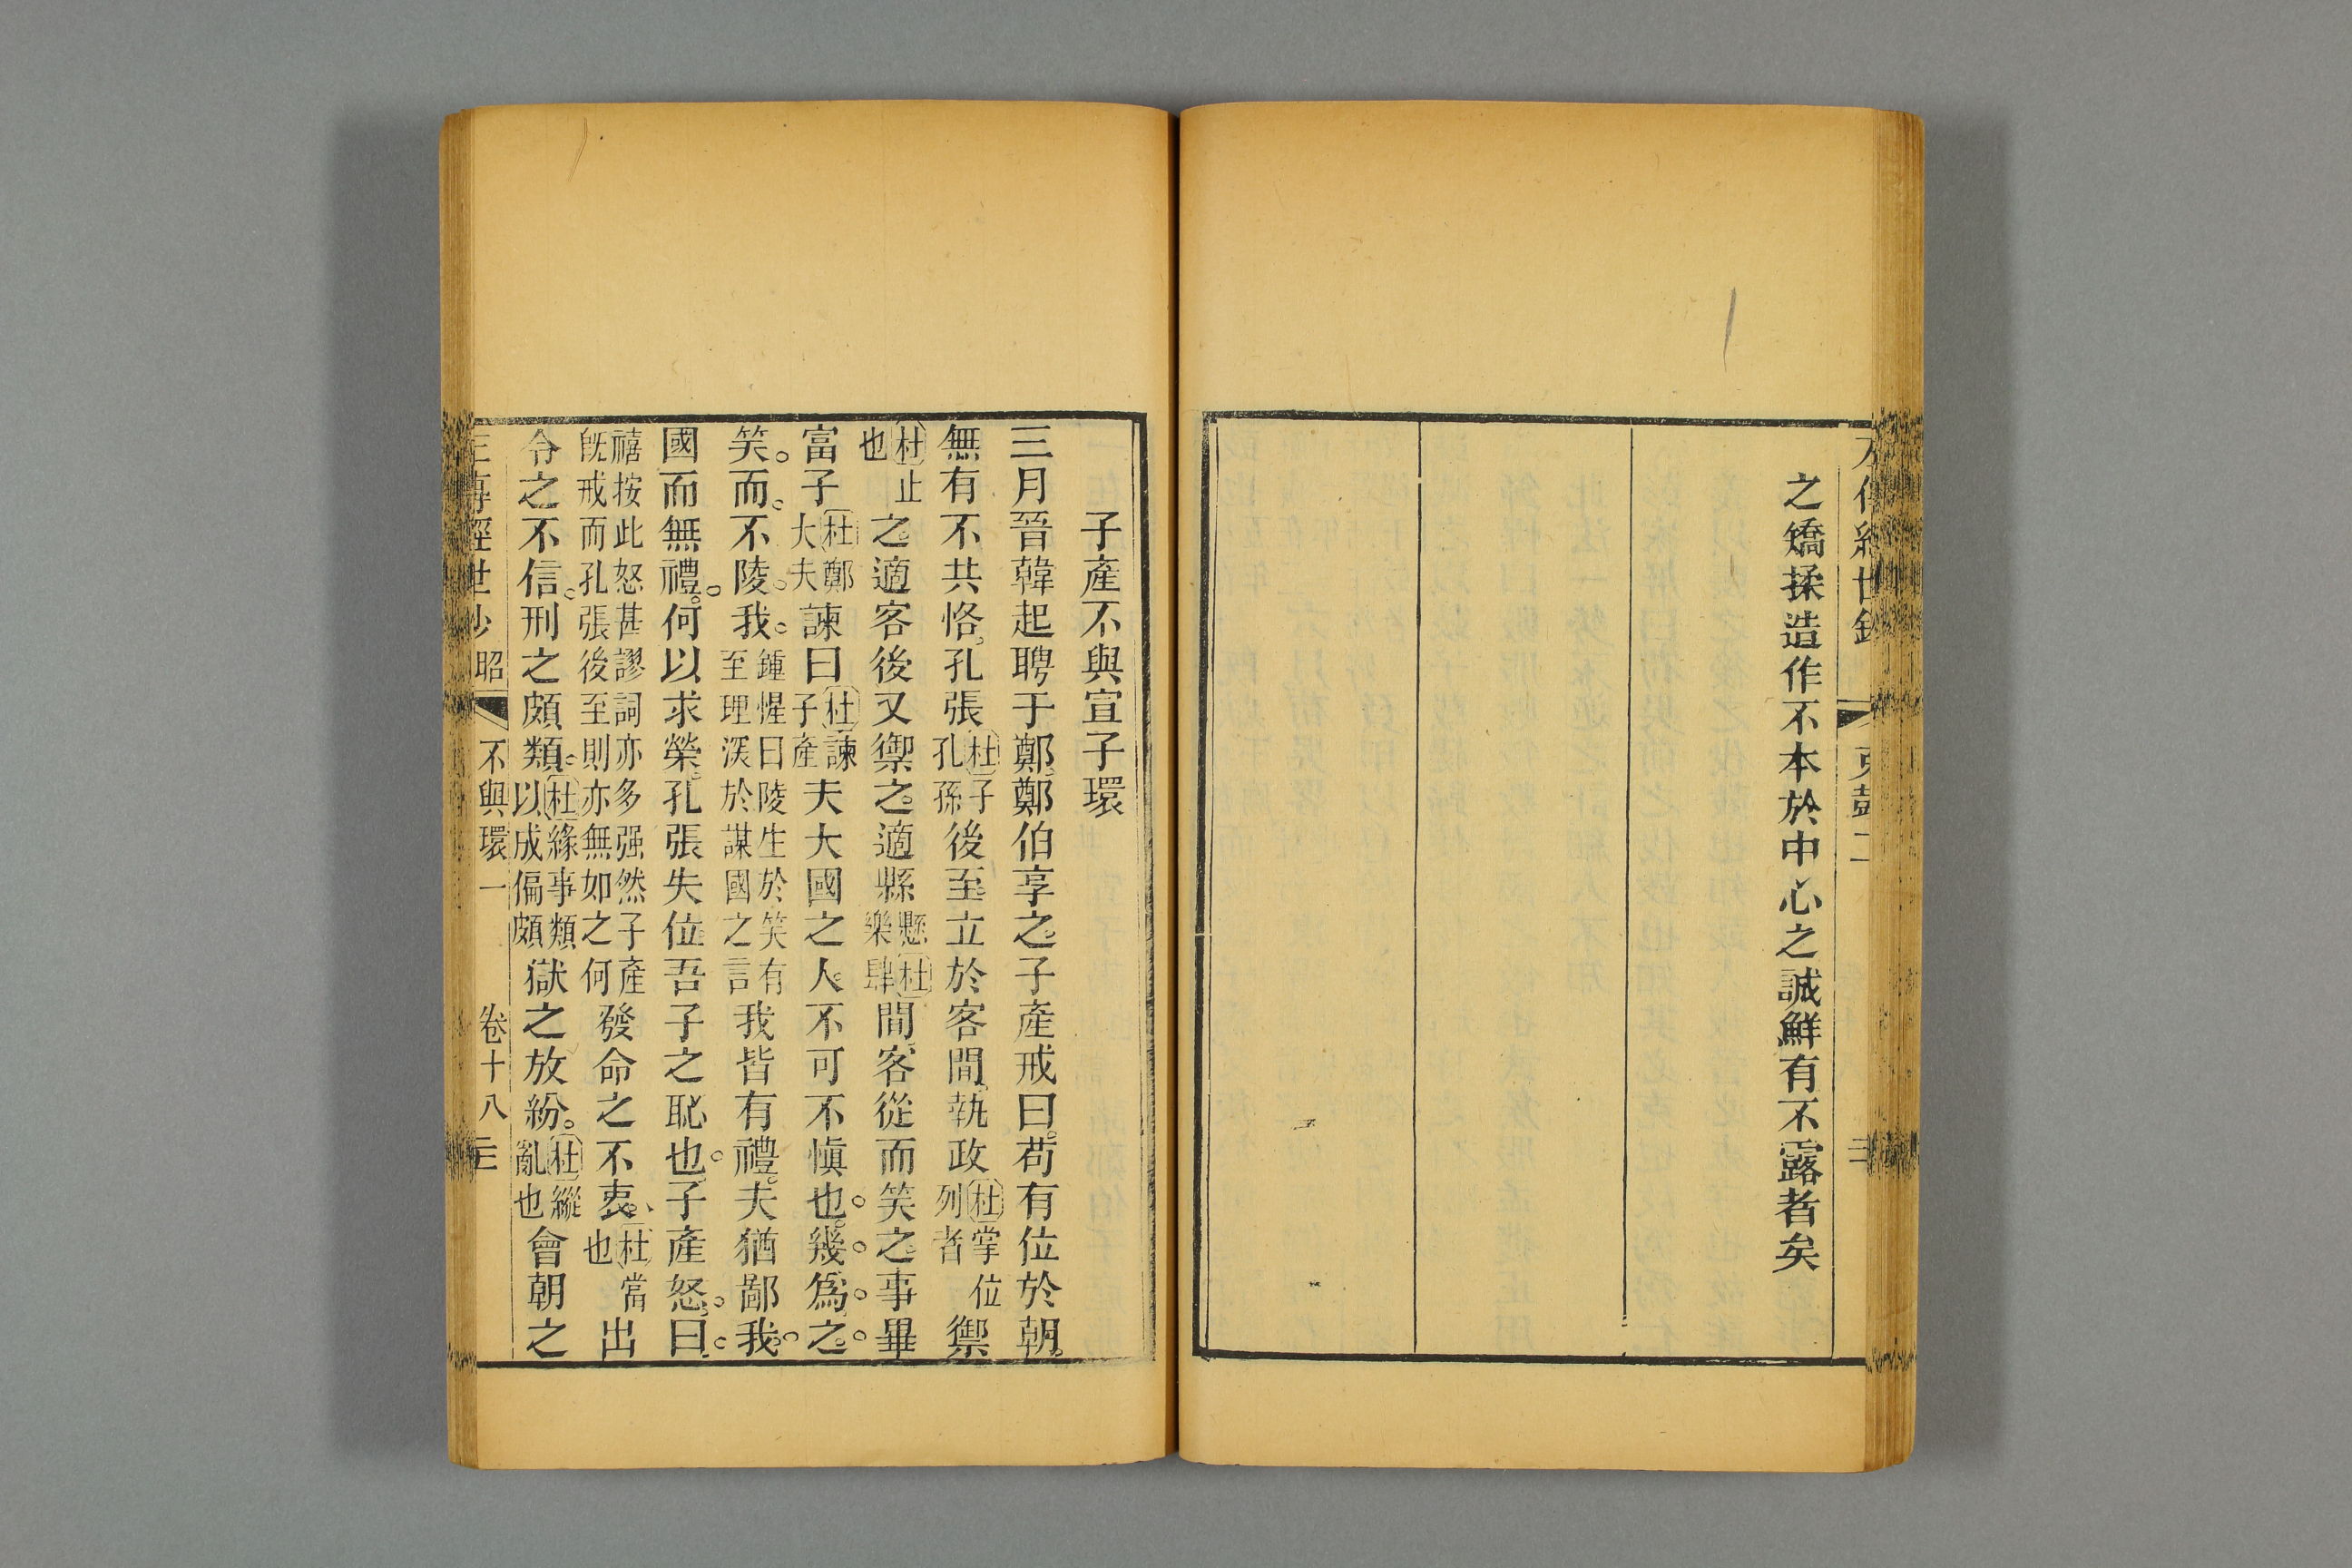 之矯揉造作不本於中心之誠鮮有不露者矣
子產不與宣子環
三月晉韓起聘于鄭鄭伯享之子產戒曰苟有位於朝
無有不共恪孔張杜子孔孫後至立於客間執政杜掌位列者禦
杜止也之適客後又禦之適縣縣杜樂肆間客從而笑之事畢
富子杜鄭大夫諫曰杜諫子產夫大國之人不可不愼也幾爲之
笑而不陵我鍾惺曰陵生於笑有至理深於謀國之言我皆有禮夫猶鄙我
國而無禮何以求榮孔張失位吾子之恥也子產怒曰
禧按此怒甚謬詞亦多强然子產旣戒而孔張後至則亦無如之何發命之不衷杜當也出
令之不信刑之頗類杜緣事類以成偏頗獄之放紛杜縱亂也會朝之
經世 昭 不與環一 卷十八 三